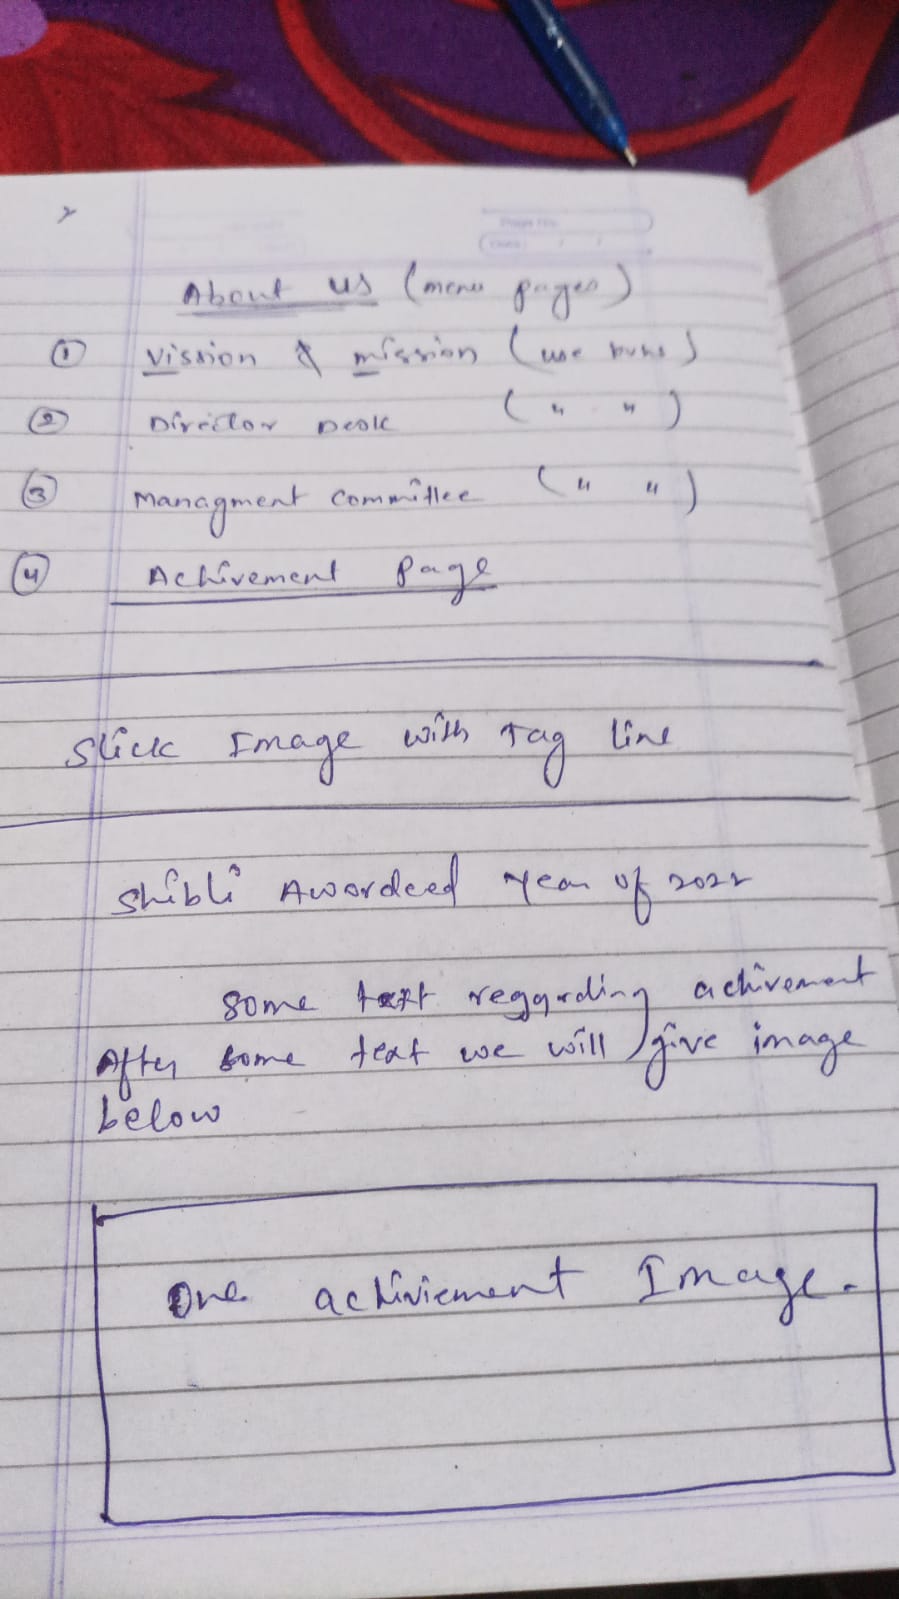 About us (menu pages)
① Vission & mission (use
② Director Desk ( " " )
③ Managment committee ( " " )
④ Achivement Page
Slick Image with Tag line
Shibli Awordeed year of 2022
Some text reggarding achivement
After some text we will give image
below
One achiviement Image.